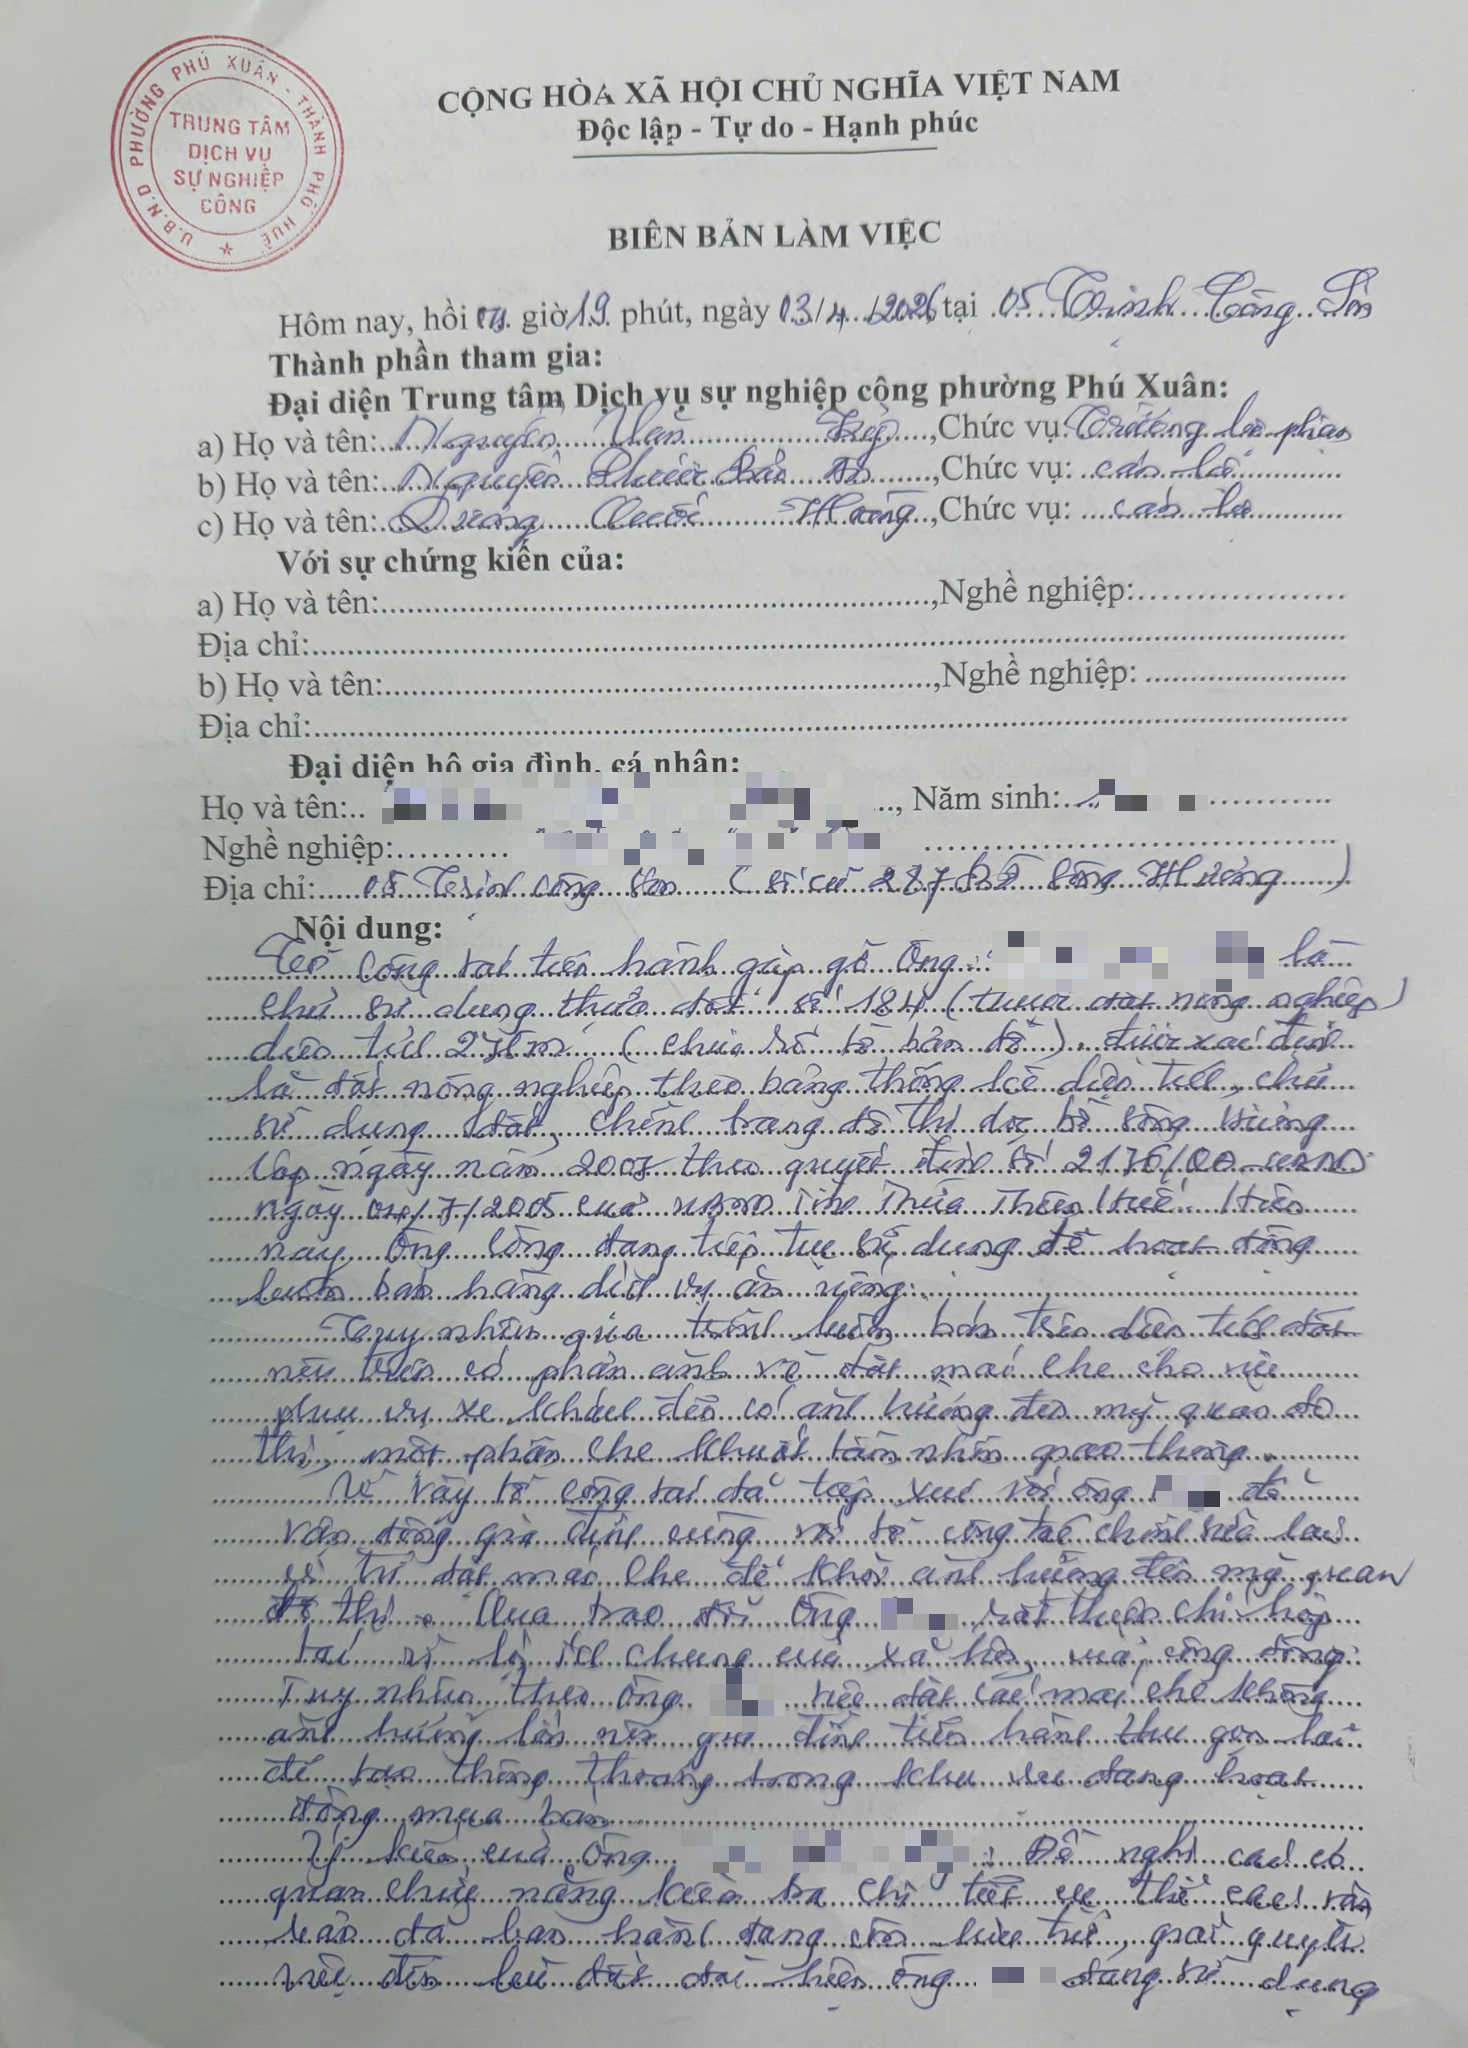 U.B.N.D PHƯỜNG PHÚ XUÂN - THÀNH PHỐ HUẾ
TRUNG TÂM
DỊCH VỤ
SỰ NGHIỆP
CÔNG
CỘNG HÒA XÃ HỘI CHỦ NGHĨA VIỆT NAM
Độc lập - Tự do - Hạnh phúc
BIÊN BẢN LÀM VIỆC
Hôm nay, hồi giờ 19 phút, ngày 03/4/2026 tại 05 Trịnh Công Sơn
Thành phần tham gia:
Đại diện Trung tâm Dịch vụ sự nghiệp công phường Phú Xuân:
a) Họ và tên: Nguyễn Văn, Chức vụ: Trưởng bộ phận
b) Họ và tên: Nguyễn Phước Bảo, Chức vụ: cán bộ
c) Họ và tên: Dương Quốc Hoàng, Chức vụ: cán bộ
Với sự chứng kiến của:
a) Họ và tên:, Nghề nghiệp:
Địa chỉ:
b) Họ và tên:, Nghề nghiệp:
Địa chỉ:
Đại diện hộ gia đình, cá nhân:
Họ và tên:, Năm sinh:
Nghề nghiệp:
Địa chỉ: 05 Trịnh Công Sơn (số cũ 287 Bờ Sông Hương)
Nội dung:
Tổ công tác tiến hành gặp gỡ Ông: là
chủ sử dụng thửa đất số 184 (thuộc đất nông nghiệp)
diện tích (chưa rõ tờ bản đồ). được xác định
là đất nông nghiệp theo bảng thống kê diện tích, chủ
sử dụng đất, chỉnh trang đô thị dọc bờ sông Hương
lập ngày năm 2005 theo quyết định số 2176/QĐ-UBND
ngày 04/7/2005 của UBND Tỉnh Thừa Thiên Huế. Hiện
nay, Ông đang tiếp tục sử dụng để hoạt động
buôn bán hàng dịch vụ ăn uống.
Tuy nhiên quá trình buôn bán trên diện tích đất
nêu trên có phản ánh về đặt mái che cho việc
phục vụ xe khách đến có ảnh hưởng đến mỹ quan đô
thị, một phần che khuất tầm nhìn giao thông.
Vì vậy tổ công tác đã tiếp xúc với ông để
vận động gia đình cùng với tổ công tác chỉnh sửa lại
vị trí đặt mái che để khỏi ảnh hưởng đến mỹ quan
đô thị. Qua trao đổi Ông rất thiện chí hợp
tác vì lợi ích chung của xã hội, của cộng đồng.
Tuy nhiên theo ông việc đặt các mái che không
ảnh hưởng lớn nên gia đình tiến hành thu gọn lại
để tạo thông thoáng trong khu vực đang hoạt
động mua bán
Ý kiến của Ông: Đề nghị các cơ
quan chức năng kiểm tra chi tiết cụ thể các văn
bản đã ban hành đang còn lưu trữ, giải quyết
việc đến đất đai hiện ông đang sử dụng